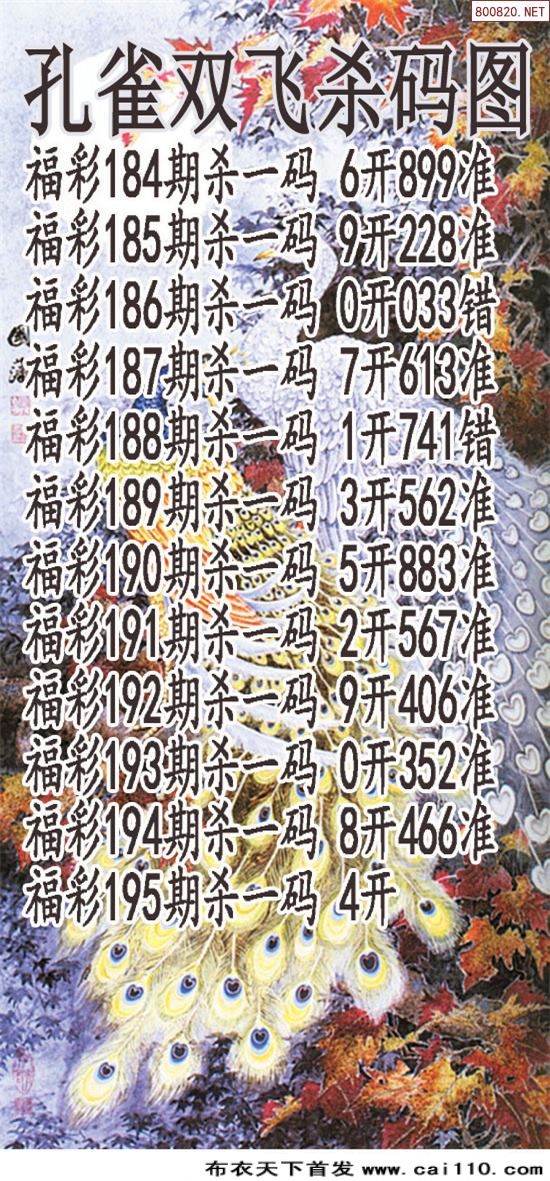 800820.NET
孔雀双飞杀码图
福彩184期杀一码 6开899准
福彩185期杀一码 9开228准
福彩186期杀一码 0开033错
福彩187期杀一码 7开613准
福彩188期杀一码 1开741错
福彩189期杀一码 3开562准
福彩190期杀一码 5开883准
福彩191期杀一码 2开567准
福彩192期杀一码 9开406准
福彩193期杀一码 0开352准
福彩194期杀一码 8开466准
福彩195期杀一码 4开
布衣天下首发 www.cai110.com